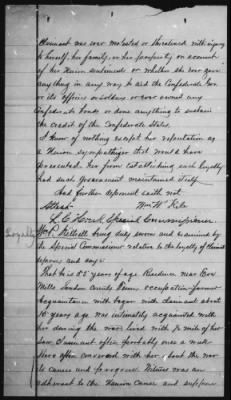 Claimant was ever molested or threatened with injury
to himself, her family, or her property on account
of her Union sentiments or whether she ever gave
anything in any way to aid the Confederate Gov
or its officers or soldiers or ever owned any
Confederate bonds or done anything to sustain
the credit of the Confederate States.
I know of nothing except her reputation as
a Union sympathizer that would have
prevented her from establishing such loyalty
had such Government maintained itself
And further deponent saith not.
Attest Wm W
Special Commissioner
Loyalty
Wm R. being duly sworn and examined by
the Special Commissioner relative to the loyalty of Claimant
deposes and says
That he is 55 years of age Residence near
Mills Loudon County Tenn, occupation farmer
Acquaintance with began with claimant about
10 years ago was intimately acquainted with
her during the war lived with ½ mile of her
Saw Claimant often probably once a week
Have often conversed with her about the war
its causes and progress. Witness was an
adherent to the Union Cause and